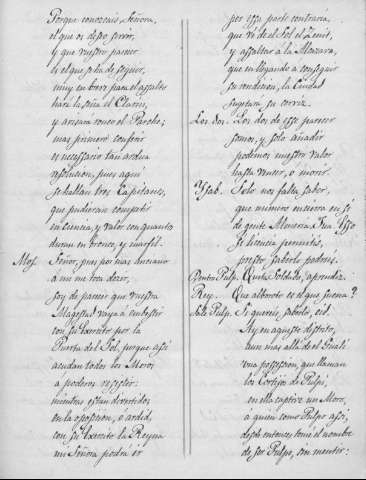 Porque conozcais, Señora,
el que os deseo servir,
y que vuestro parecer
es el que se ha de seguir,
muy en breve para el assalto
hará la seña el Clarin,
y avisará ronco el Parche;
mas primero conferir
es necessario tan ardua
resolucion, pues aqui
se hallan tres Capitanes,
que pudieran competir
en ciencia, y valor con quantos
duran en bronce, y marfil.
Mos. Señor, pues por mas anciano
á mi me toca dezir,
soy de parecer que vuestra
Magestad vaya a embestir
con su Exercito por la
Puerta del Sol, porque assi
acudan todos los Moros
a poderos resistir:
mientras estan divertidos
en la oposicion, o ardid,
con su Exercito la Reyna
mi Señora podrá ir
por essa parte contraria,
que vé de el Sol el Zenit,
y assaltar á la Alcazava,
que en llegando a conseguir
su rendicion, la Ciudad
sugetará su cerviz.
Los dos. Los dos de esse parecer
somos, y solo añadir
podemos nuestro valor
hasta vencer, o morir.
Ysab. Solo nos falta saber,
que numero encierra en sí
de gente Almeria. Fern. Esso
se licencia permitis,
presto saberlo podreis.
Dentro Pulp. Quita Soldado, aprendiz.
Rey. Que alboroto es el que suena?
Sale Pulp. Si quereis saberlo, oid.
Ay en aqueste distrito,
aun mas allá de el
una possession, que llaman
los Cortijos de Pulpi,
en ella captivé un Moro,
a quien como Pulpo assi,
desde entonces tomé el nombre
de ser Pulpo, sin mentir: